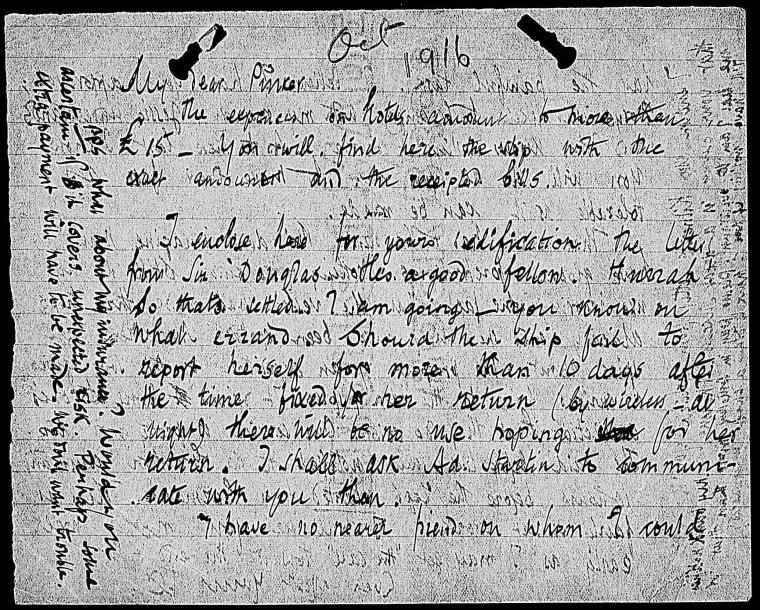 Oct
1916
My Dear Pinker
The expenses on hotels amount to more than
£15 – You will find here the slip with the
exact amount and the receipted bills.
I enclose here for yours edification the letter
from Sir Douglas. He's a good fellow. Hurrah
So thats settled. I am going – you know on
what errand. Should the ship fail to
report herself for more than 10 days after
the time fixed for her return (by wireless – at
night) there will be no use hoping for her
return. I shall ask Ad. Startin to communi-
cate with you then.
I have no nearer friend on whom I could
PPS What about my insurance? Would you
ascertain if it covers unexpected risk. Perhaps some
extra payment will have to be made. We don't want trouble.